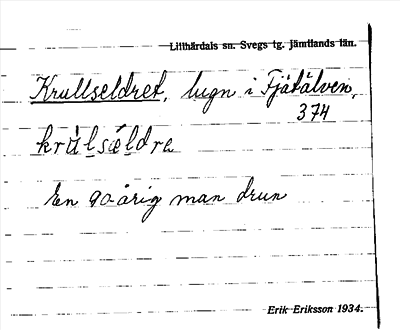 Lillhärdals sn. Svegs tg. jämtlands län.
Krullseldret, lugn i Fjätälven,
374
krùlsǽldre
En 90-årig man drun
Erik Eriksson 1934.